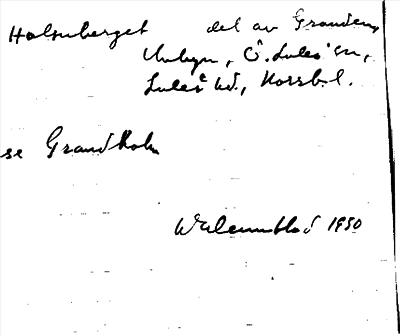 Holmberget del av Granden,
Unbyn, Ö. Luleå sn,
Luleå hd, Norrb. l.
se Grandholm
Walemblad 1950